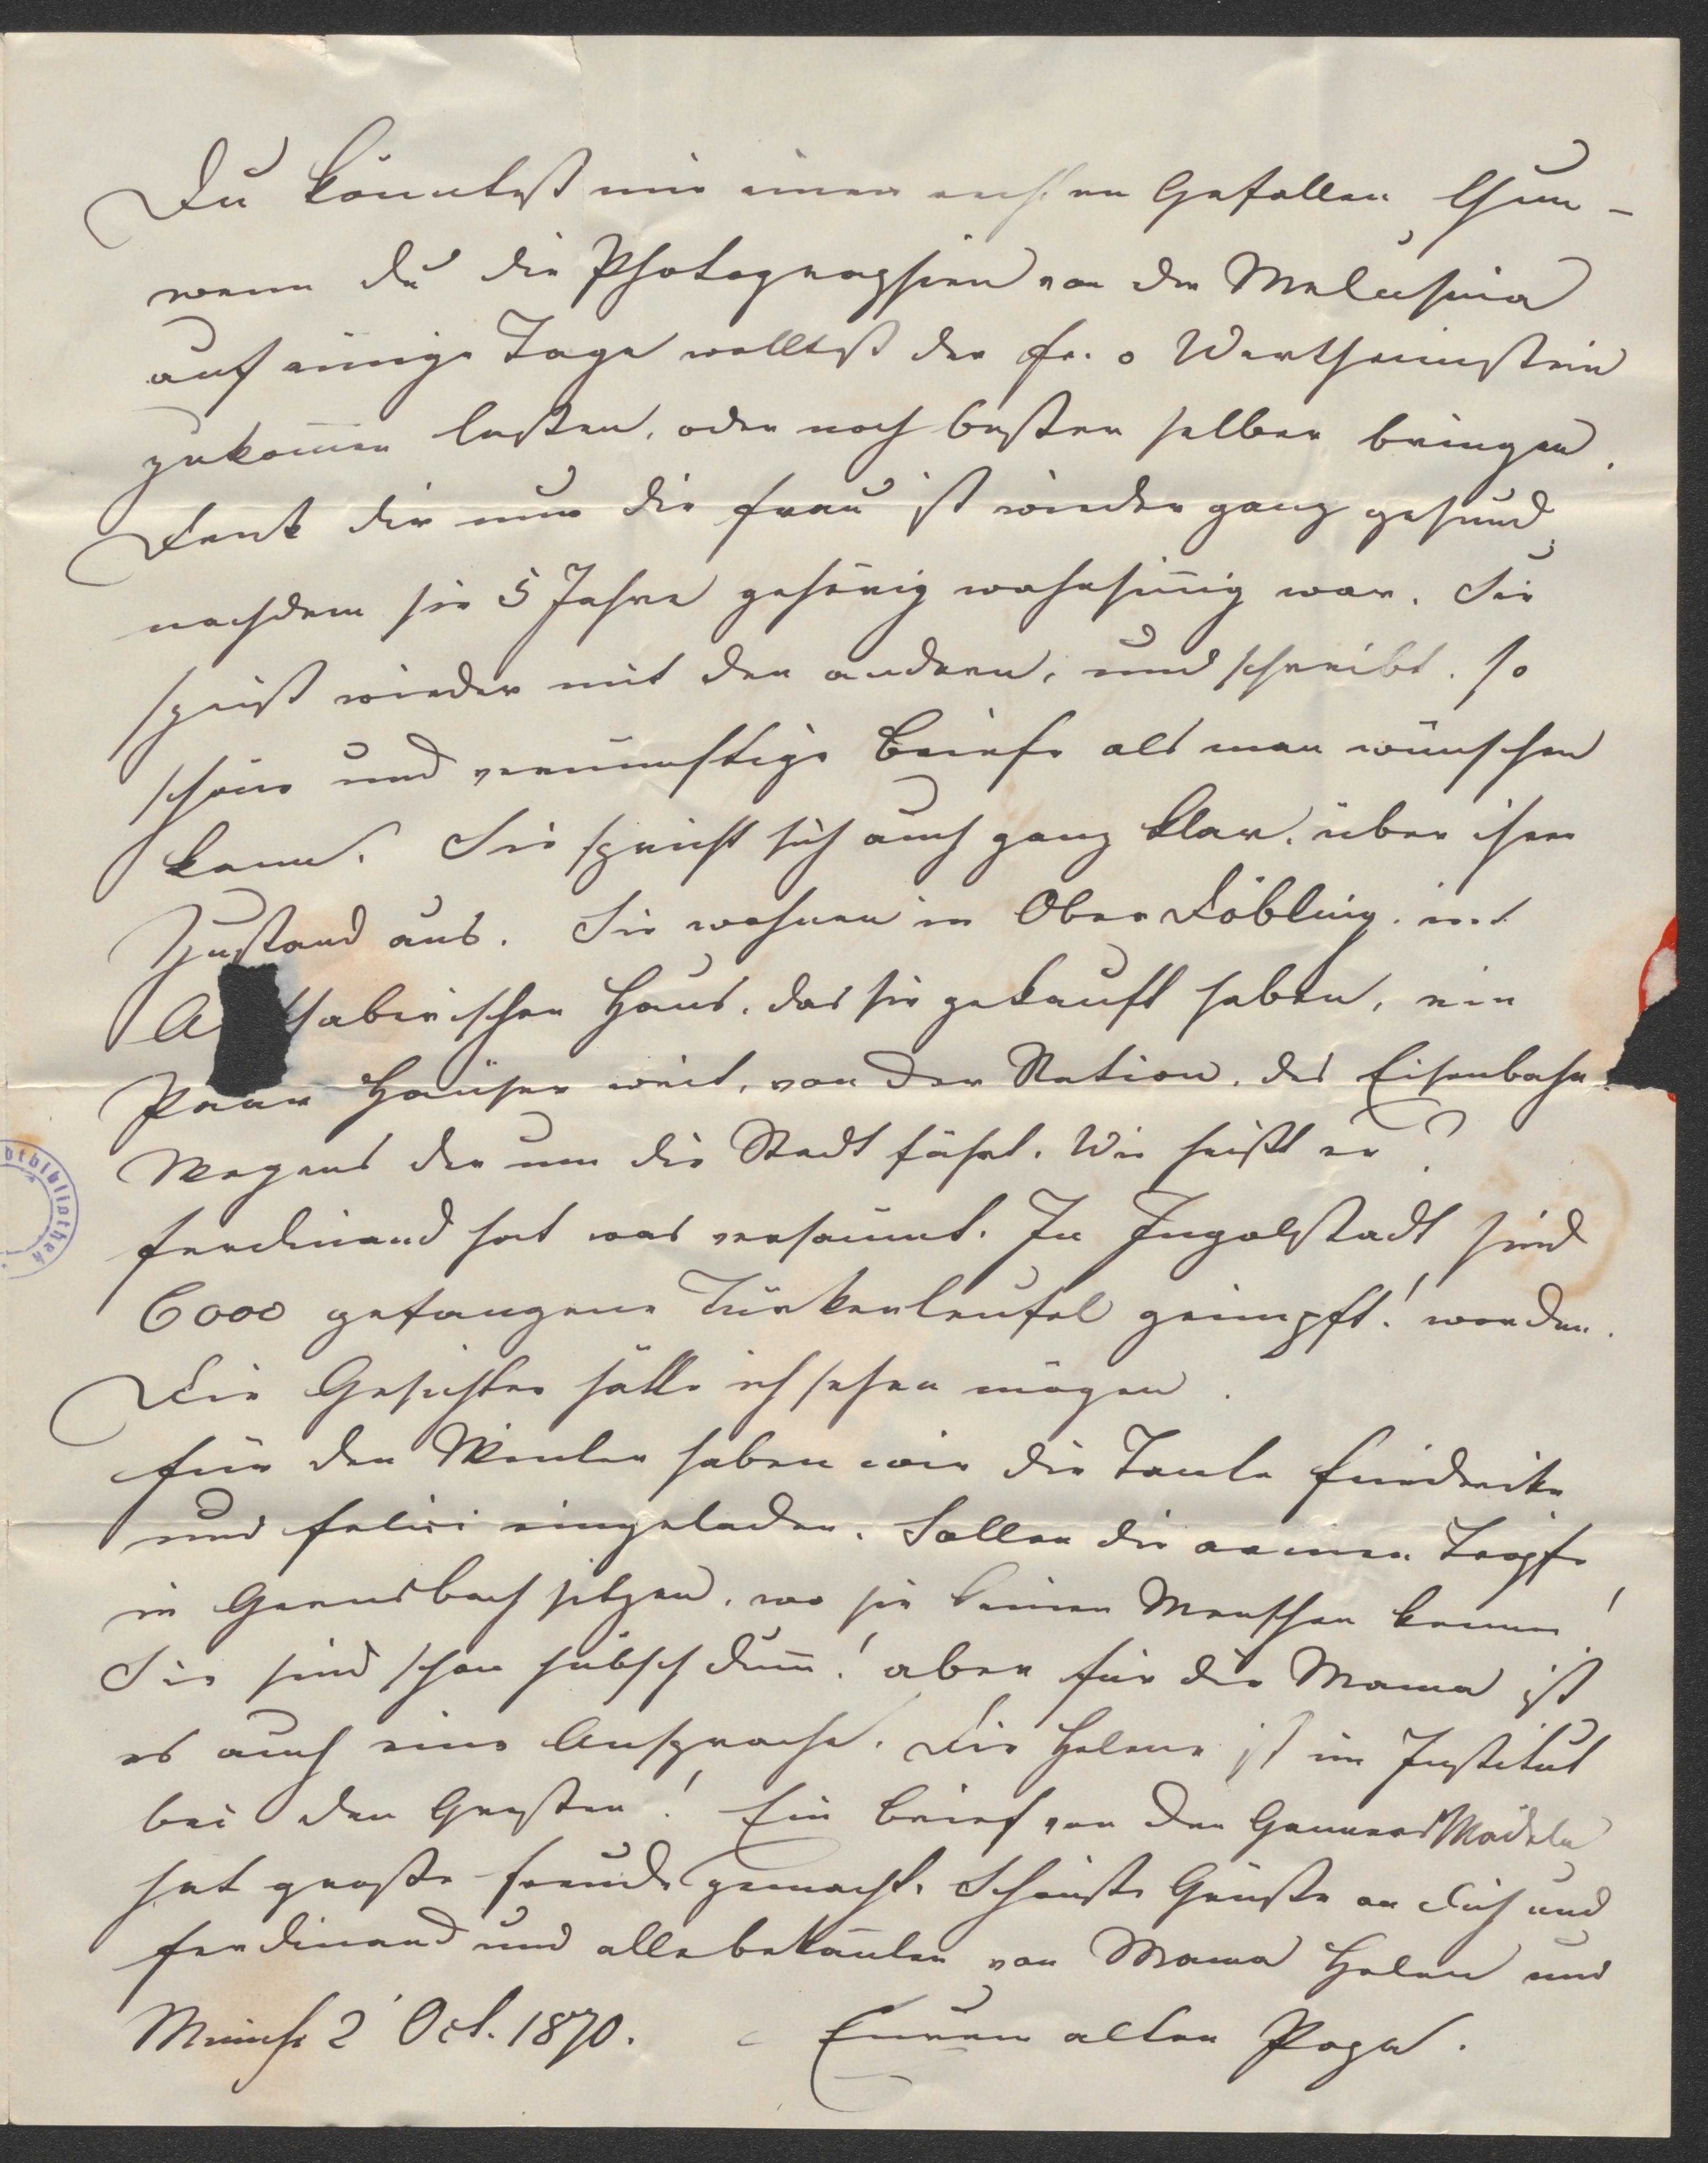 Du könntest mir einen rechten Gefallen thun –
wenn du die Photographien von der Melusina
auf einige Tage wolltest der Fr. v Wertheimstein
zukom̅en lassen, oder noch besser selber bringen.
Denk dir nur die Frau ist wieder ganz gesund,
nachdem sie 5 Jahre gehörig wahnsin̅ig war. Sie
speist wieder mit den andern, und schreibt so
schöne und vernünftige Briefe als man wünschen
kann. Sie spricht sich auch ganz klar über ihren
Zustand aus. Sie wohnen in Ober Döbling im
A thaberischen Haus, das sie gekauft haben, ein
Paar Häuser weit, von der Station des Eisenbahn
Wagens der um die Stadt fährt. Wie heißt er?
Ferdinand hat was versäumt. In Ingolstadt sind
6000 gefangene Türkenteufel geimpft! worden.
Die Gesichter hätte ich sehen mögen.
Für den Winter haben wir die Tante Friederike
und Felici eingeladen. Sollen die armen Tröpfe
in Gernsbach sitzen, wo sie keinen Menschen kennen!
Sie sind schon hübsch dum̅! aber für die Mama ist
es auch eine Ansprache. Die Helene ist im Institut
bei den Großen! Ein Brief von den Mädeln
hat große Freude gemacht. Schönste Grüße an dich und
Ferdinand und alle bekan̅ten von Mama Helene und
Münch 2' Oct. 1870. Eurem alten Papa.
btbibliothek